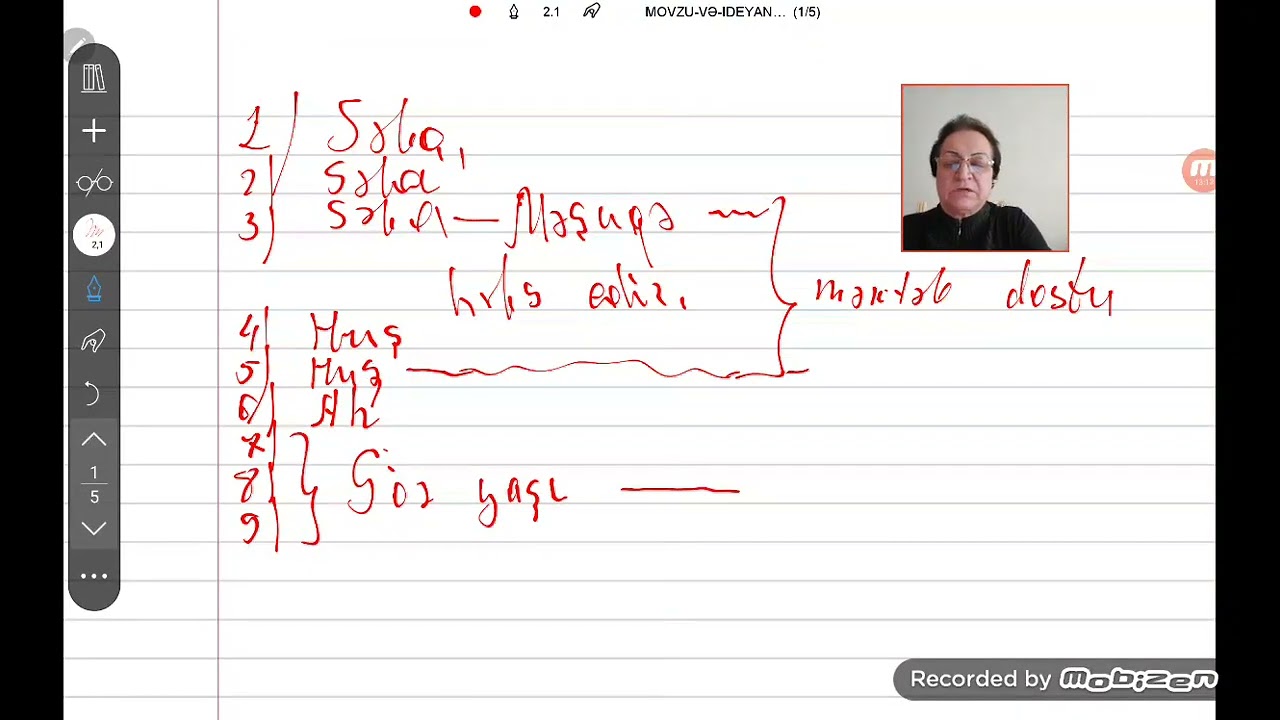 2.1 MOVZU-VƏ-IDEYAN... (1/5)
1 Səba,
2 Səba
3 Səba — Məşuqə
həbs edir. məktəb dostu
4 Huş
5 Huş
6 Ah
7
8 Göz yaşı —
9
2,1
1
5
13:12
Recorded by mobizen